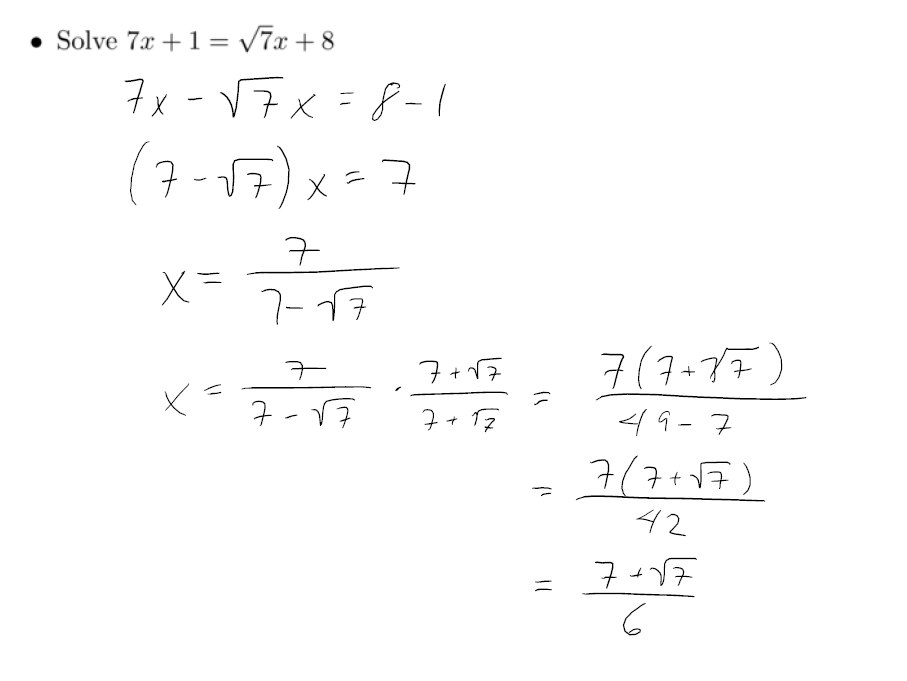 • Solve 7x + 1 = √7x + 8
7x - √7 x = 8 - 1
(7 - √7) x = 7
x = 7 / (7 - √7)
x = 7 / (7 - √7) · (7 + √7) / (7 + √7) = 7(7 + √7) / (49 - 7)
= 7(7 + √7) / 42
= (7 + √7) / 6